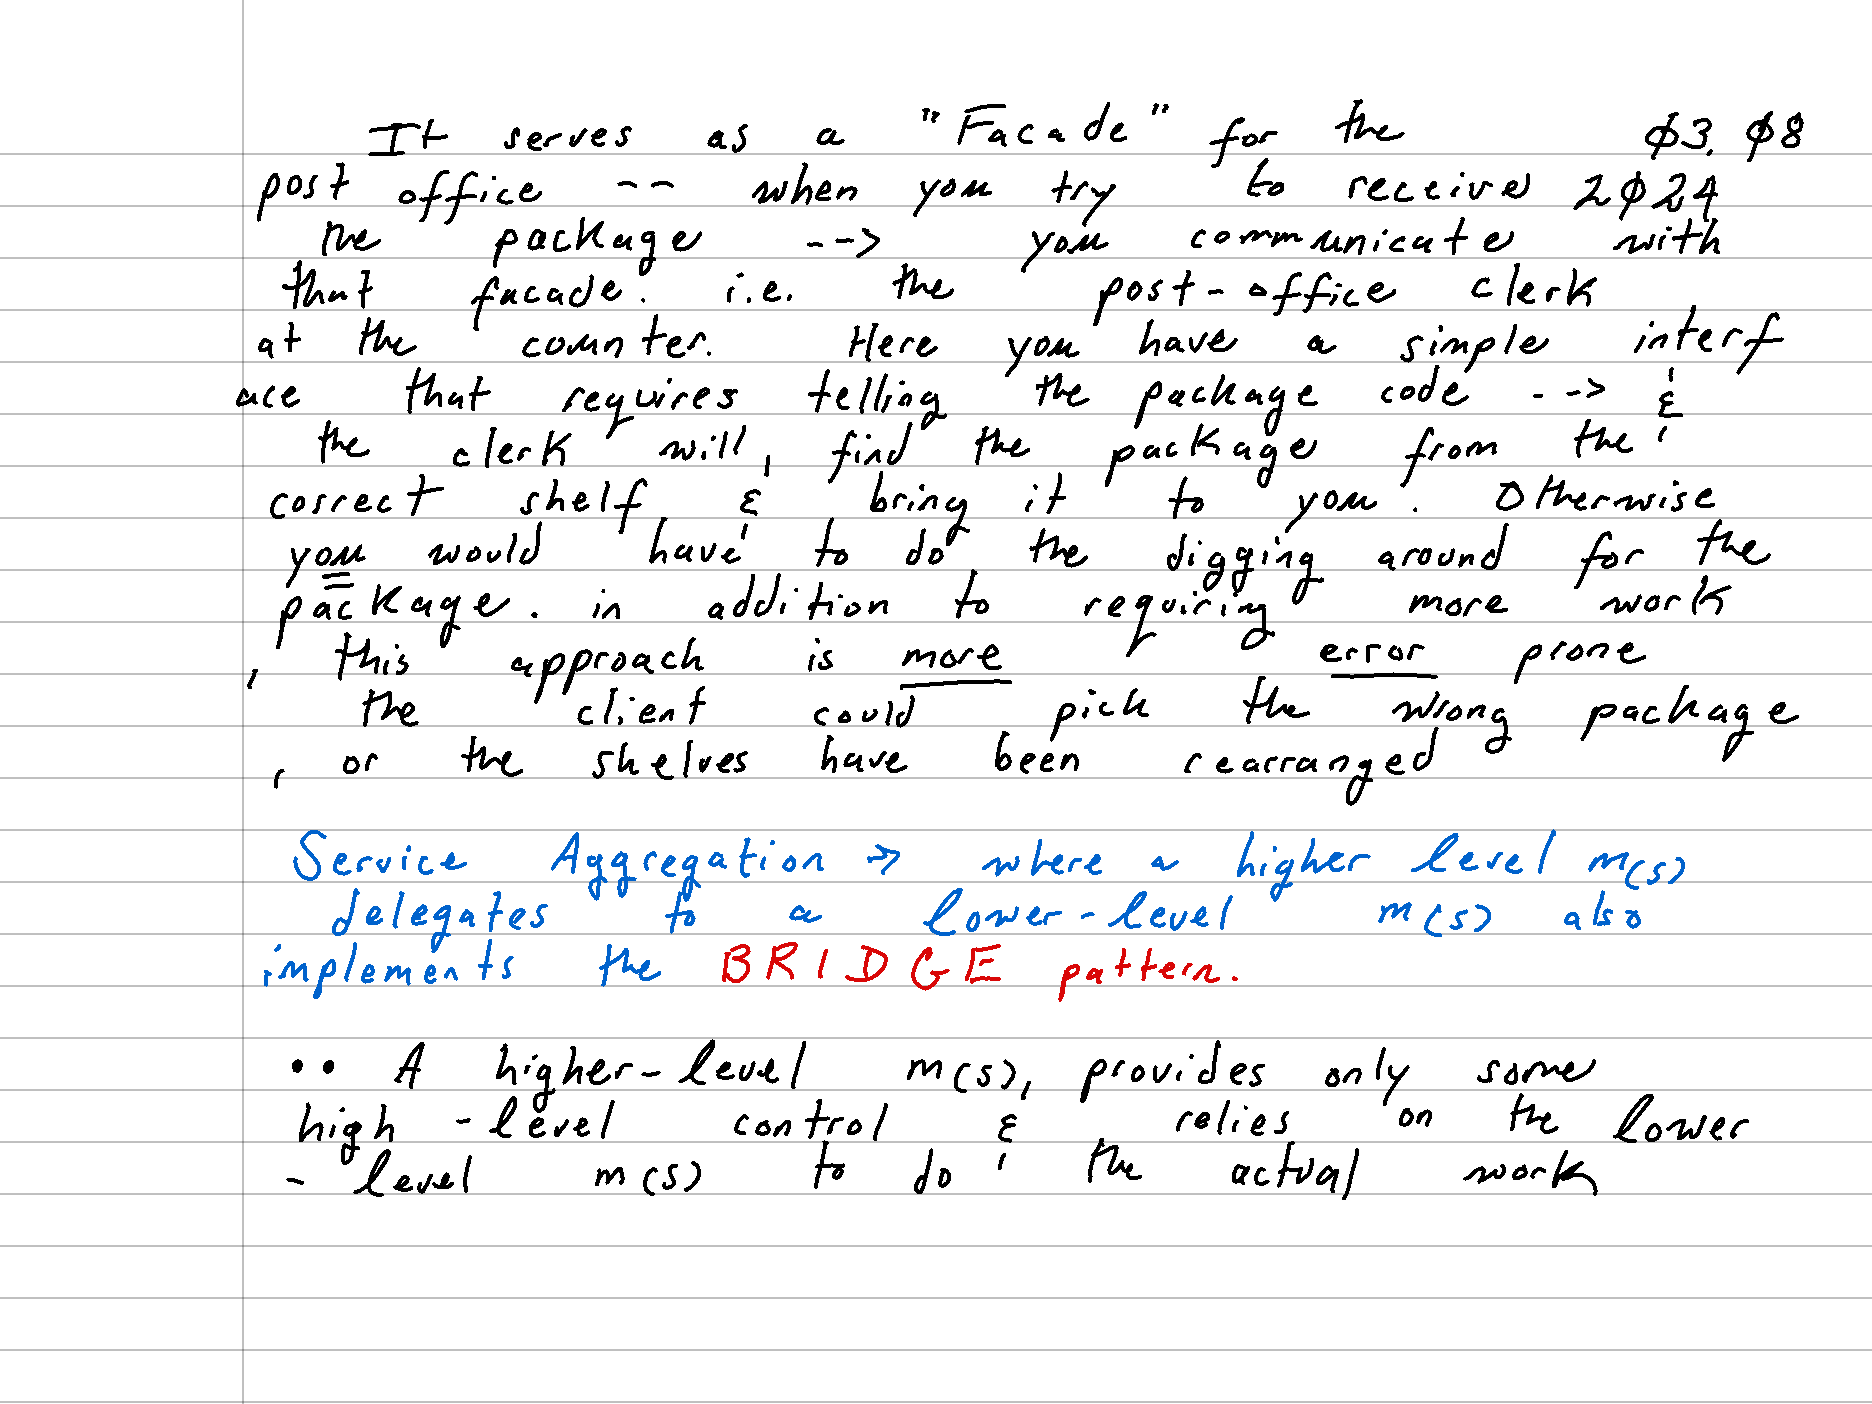 It serves as a "Facade" for the Ø3. Ø8
post office -- when you try to receive 2Ø24
the package --> you communicate with
that facade. i.e. the post-office clerk
at the counter. Here you have a simple interf
ace that requires telling the package code --> &
the clerk will, find the package from the
correct shelf & bring it to you. Otherwise
you would have to do the digging around for the
package. in addition to requiring more work
, this approach is more error prone
the client could pick the wrong package
, or the shelves have been rearranged
Service Aggregation -> where a higher level m(s)
delegates to a lower-level m(s) also
implements the BRIDGE pattern.
•• A higher-level m(s), provides only some
high -level control & relies on the lower
- level m(s) to do the actual work